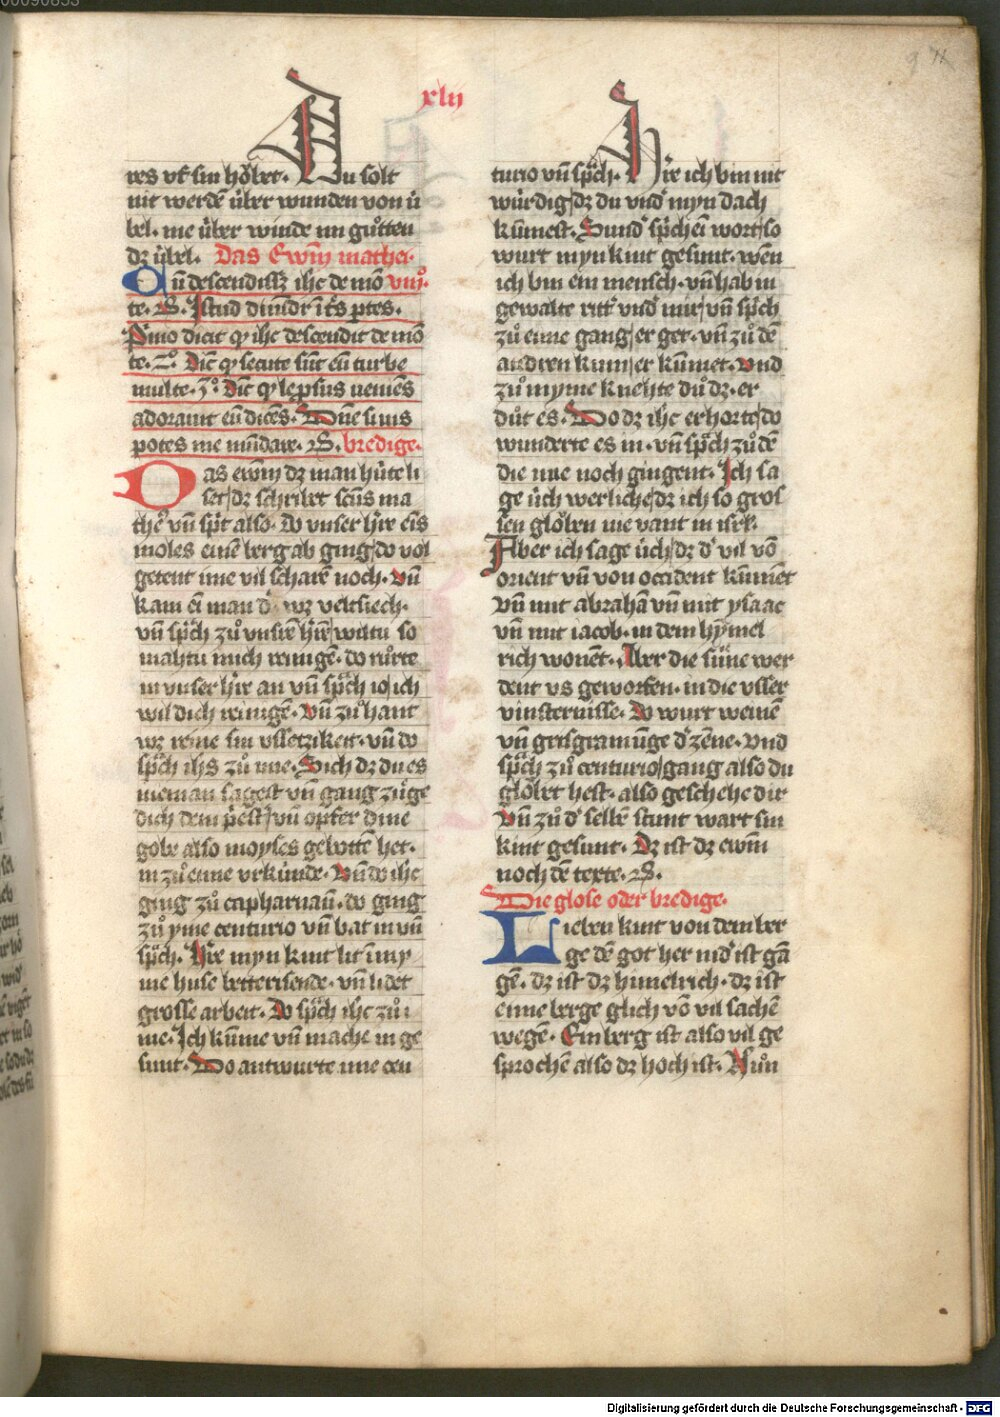 xlij
res vf sin hoͤbet. Du solt
nit werdē über wunden von ü
bel. me über winde im guͦtten
dz übel. Das Ewm̄ mathei.
Cū descendissz ihc de mō viijͦ.
te. S. Istud dinidr̄ ī t̄s ptes.
Pimo dicit ꝙ ihc descendit de mō
te. 2ͦ. Dic̄ ꝙ secute sūt eū turbe
multe. 3ͦ. Dic̄ ꝙ lepsus veniēs
adorauit eū dicēs. Dn̄e si vis
potes me mūdare. S. bredige.
Das ewm̄ dz man hüte li
set / dz schribet scūs ma
theꝰ vn̄ spͥt also. do vnser hͥre eīs
moles einē berg ab ging / do vol
getent ime vil scharē noch. Vn̄
kam ei man dͥ wz veltsiech.
vn̄ spͣch zuͦ vnsrē hͥrē wiltu so
mahtu mich reinigē. do ruͦrte
in vnser hͥre an vn̄ spͣch io / ich
wil dich reinigē. Vn̄ zuͦ hant
wz reine sin vssetzikeit. vn̄ do
spͣch ihs zuͦ ime. Sich dz du es
nieman sagest vn̄ gang zöige
dich dem pͥest / vn̄ opfer dine
gobe also moyses gebottē het.
in zuͦ eime vrkünde. Vn̄ do ihc
ging zuͦ capharnaū. do ging
zuͦ yme centurio vn̄ bat in vn̄
spͣch. Hͥre myn kint lit ī my
me huse betterisende. vn̄ lidet
grosse arbeit. Do spͣch ihc zuͦ i
me. Ich kūme vn̄ mache in ge
sunt. Do antwurte ime cen
turio vn̄ spͣch. Hͥre ich bin nit
würdig / dz du vndͥ myn dach
kūmest. Sundͥ spͥch ei wort / so
wurt myn kint gesunt. wen
ich bin ein mensch. vn̄ hab in
gewalte rittͥ vndͥ mir / vn̄ spͥch
zuͦ eime gang / er get. vn̄ zuͦ dē
andren kum / er kūmet. Vnd
zuͦ myme knehte duͦ dz. er
duͦt es. Do dz ihc erhorte / do
wunderte es in. vn̄ spͣch zuͦ dē
die ime noch gingent. Ich sa
ge üch werliche / dz ich so gros
sen gloͤben nie vant in isrl.
Aber ich sage üch / dz dͥ vil vō
orient vn̄ von occident kūmēt
Vn̄ mit abrahā vn̄ mit ysaac
vn̄ mit iacob. in dem hymel
rich wonēt. Aber die süne wer
dent vs geworfen. in die vsser
vinsternisse. do wurt weinē
vn̄ grisgramūge dͥ zēne. Vnd
spͣch zuͦ centurio / gang also du
gloͤbet hest. also geschehe dir
Vn̄ zuͦ dͥ selbē stunt wart sin
kint gesunt. Dz ist dz ewm̄
noch dē texte. S.
Die glose oder bredige.
Lieben kint von dem ber
ge dē got her nidͥ ist gā
gē. dz ist dz himelrich. dz ist
eime berge glich vō vil sachē
wegē. Ein berg ist also vil ge
sprochē also dz hoch ist. Nuͦn